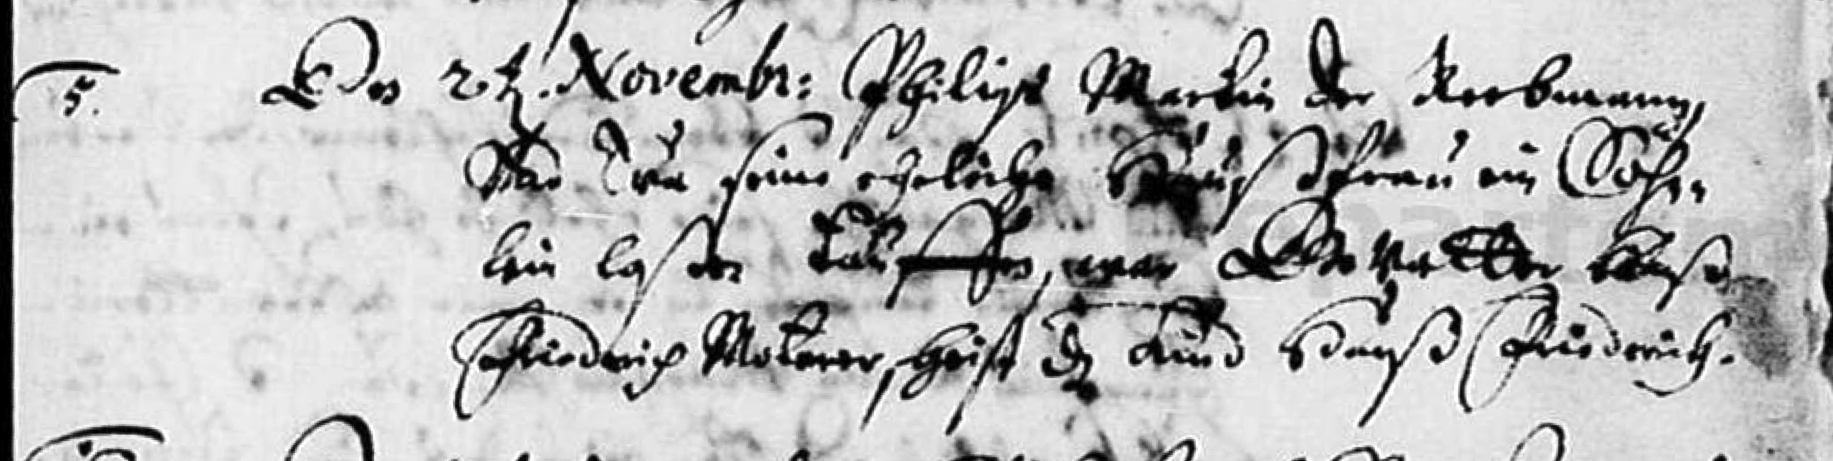 5. Den 24. Novembr: Philips Martin der Rebmann,
Und Eva seine eheliche Haußfrau ein Söhn-
lein laßen tauffen, war Gevatter Hanß
Friedrich Maurer, heist dz Kind Hanß Friedrich.